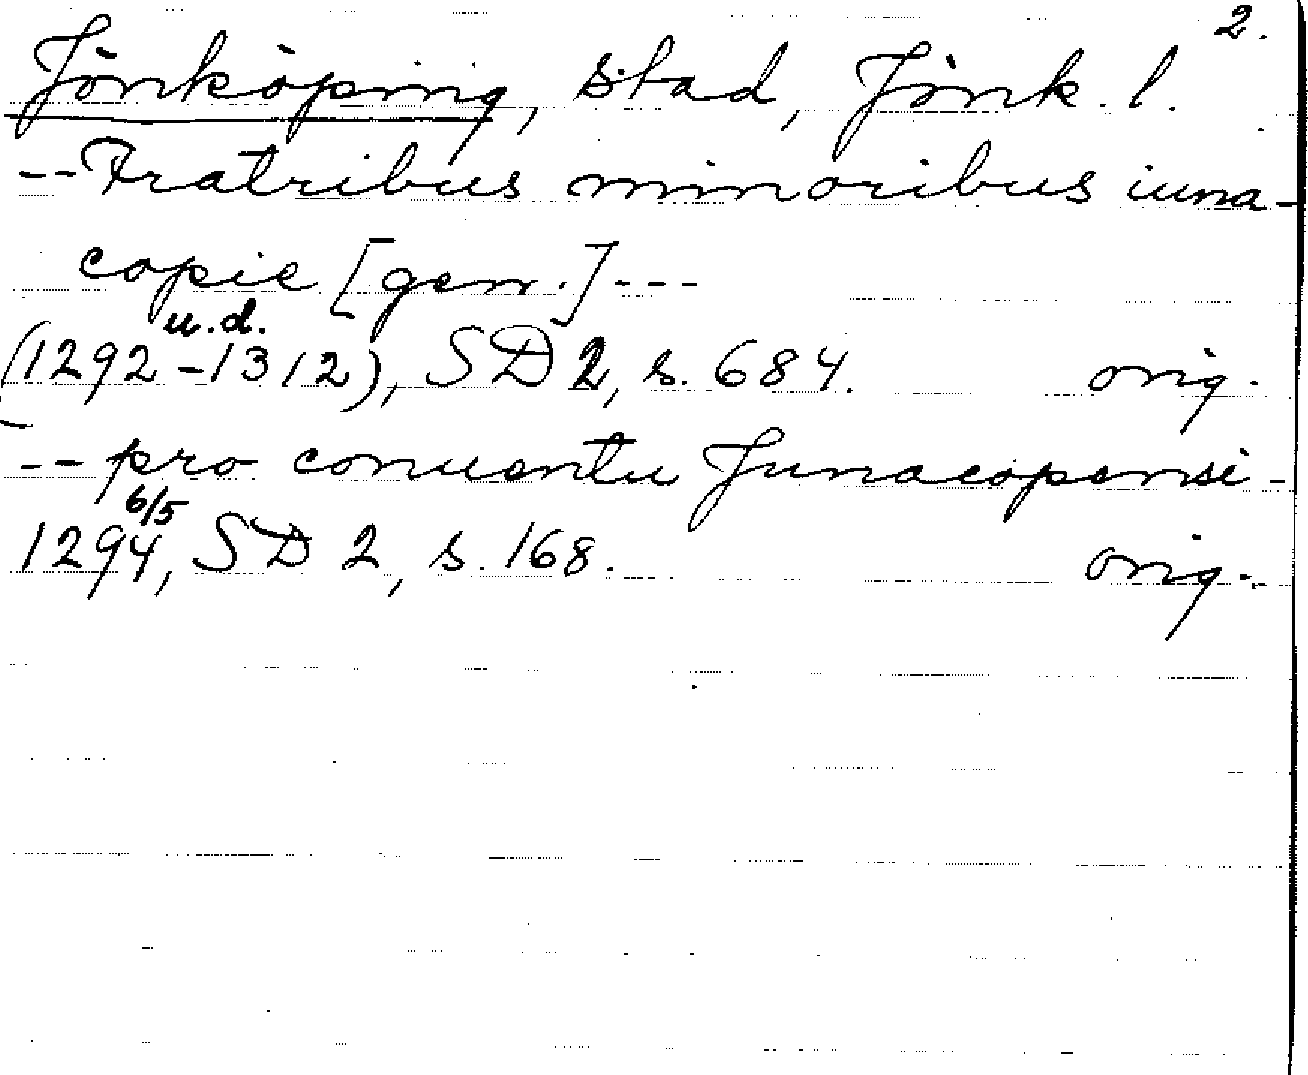 2.
Jönköping, stad, Jönk. l.
-- Fratribus minoribus iuna-
copie [gen.] ---
u.d.
(1292-1312), SD 2, s. 684. orig.
-- pro conuentu Junacopensi -
6/5
1294, SD 2, s. 168. orig.